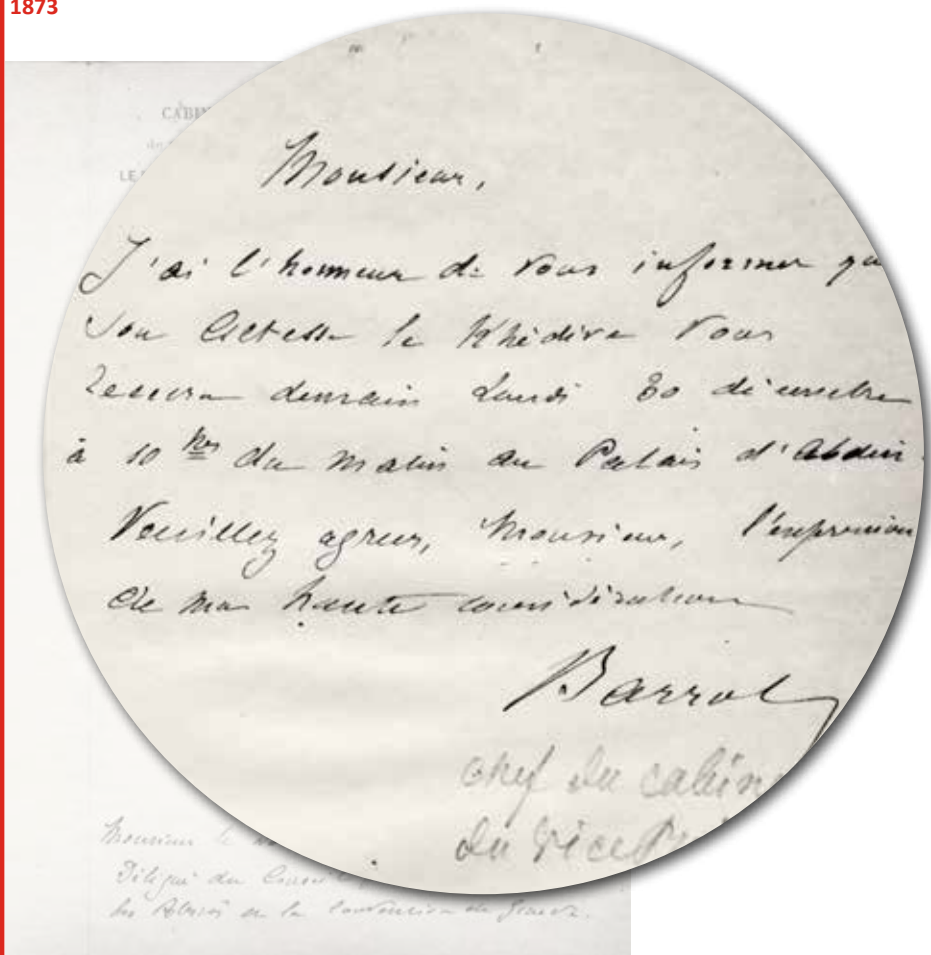 1873
CABIN
LE
Monsieur,
J'ai l'honneur de Vous informer qu
Son Altesse le Khédive Vous
recevra demain Lundi 30 décembre
à 10 hres du matin au Palais d'Abdin.
Veuillez agréer, Monsieur, l'expression
de ma haute considération
Barrot
chef du cabin
du Vice
Monsieur le
Délégué du
la Convention de Genève.